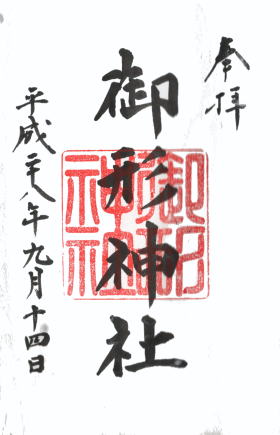 奉拝
御形神社
平成二十八年九月十四日